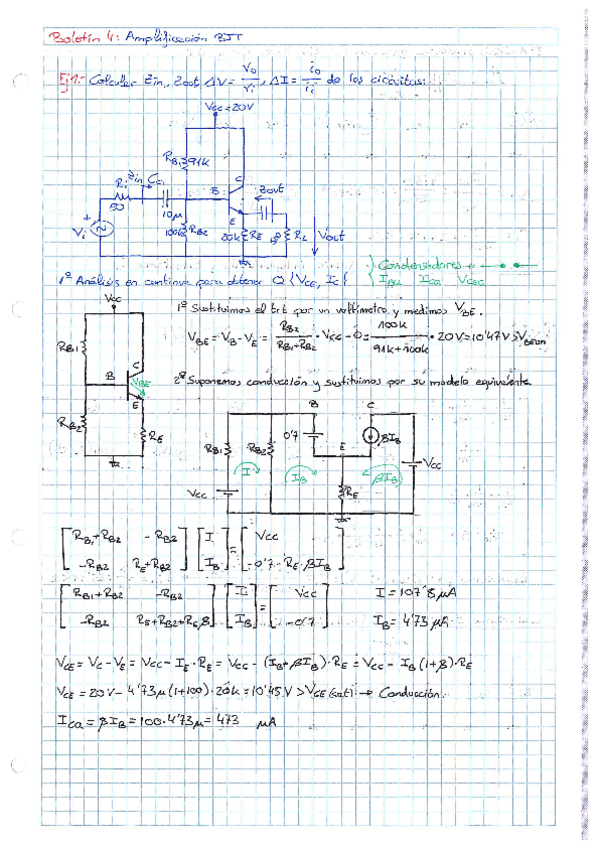 Boletín 4: Amplificación BJT
Ej1: Calcular Zin, Zout ΔV = vo/vi, ΔI = io/ii de los circuitos:
Vcc = 20V
RB1 91k
Ri Zin CC1
50
B C E
Zout
10μ
100k RB2
20k RE
RL
Vi
Vout
1º Análisis en continua para obtener Q {VCE, IC}
Condensadores →
IBQ ICQ VCEQ
Vcc
RB1
B C
VBE
E
RB2
RE
1º Sustituimos el trt por un voltímetro y medimos VBE.
VBE = VB - VE = RB2/(RB1+RB2) · Vcc - 0 = 100k/(91k+100k) · 20V = 10'47V > VBEon
2º Suponemos conducción y sustituimos por su modelo equivalente
B C
RB1 RB2 0'7 E βIB
I IB βIB
Vcc RE Vcc
[RB1+RB2 -RB2] [I] = [Vcc]
[-RB2 RE+RB2] [IB] [-0'7-RE·βIB]
[RB1+RB2 -RB2] [I] = [Vcc] I = 107'8 μA
[-RB2 RE+RB2+REβ] [IB] [-0'7] IB = 4'73 μA
VCE = VC - VE = Vcc - IE·RE = Vcc - (IB+βIB)·RE = Vcc - IB(1+β)·RE
VCE = 20V - 4'73μ(1+100)·20k = 10'45V > VCE(sat) → Conducción.
ICQ = βIB = 100·4'73μ = 473 μA